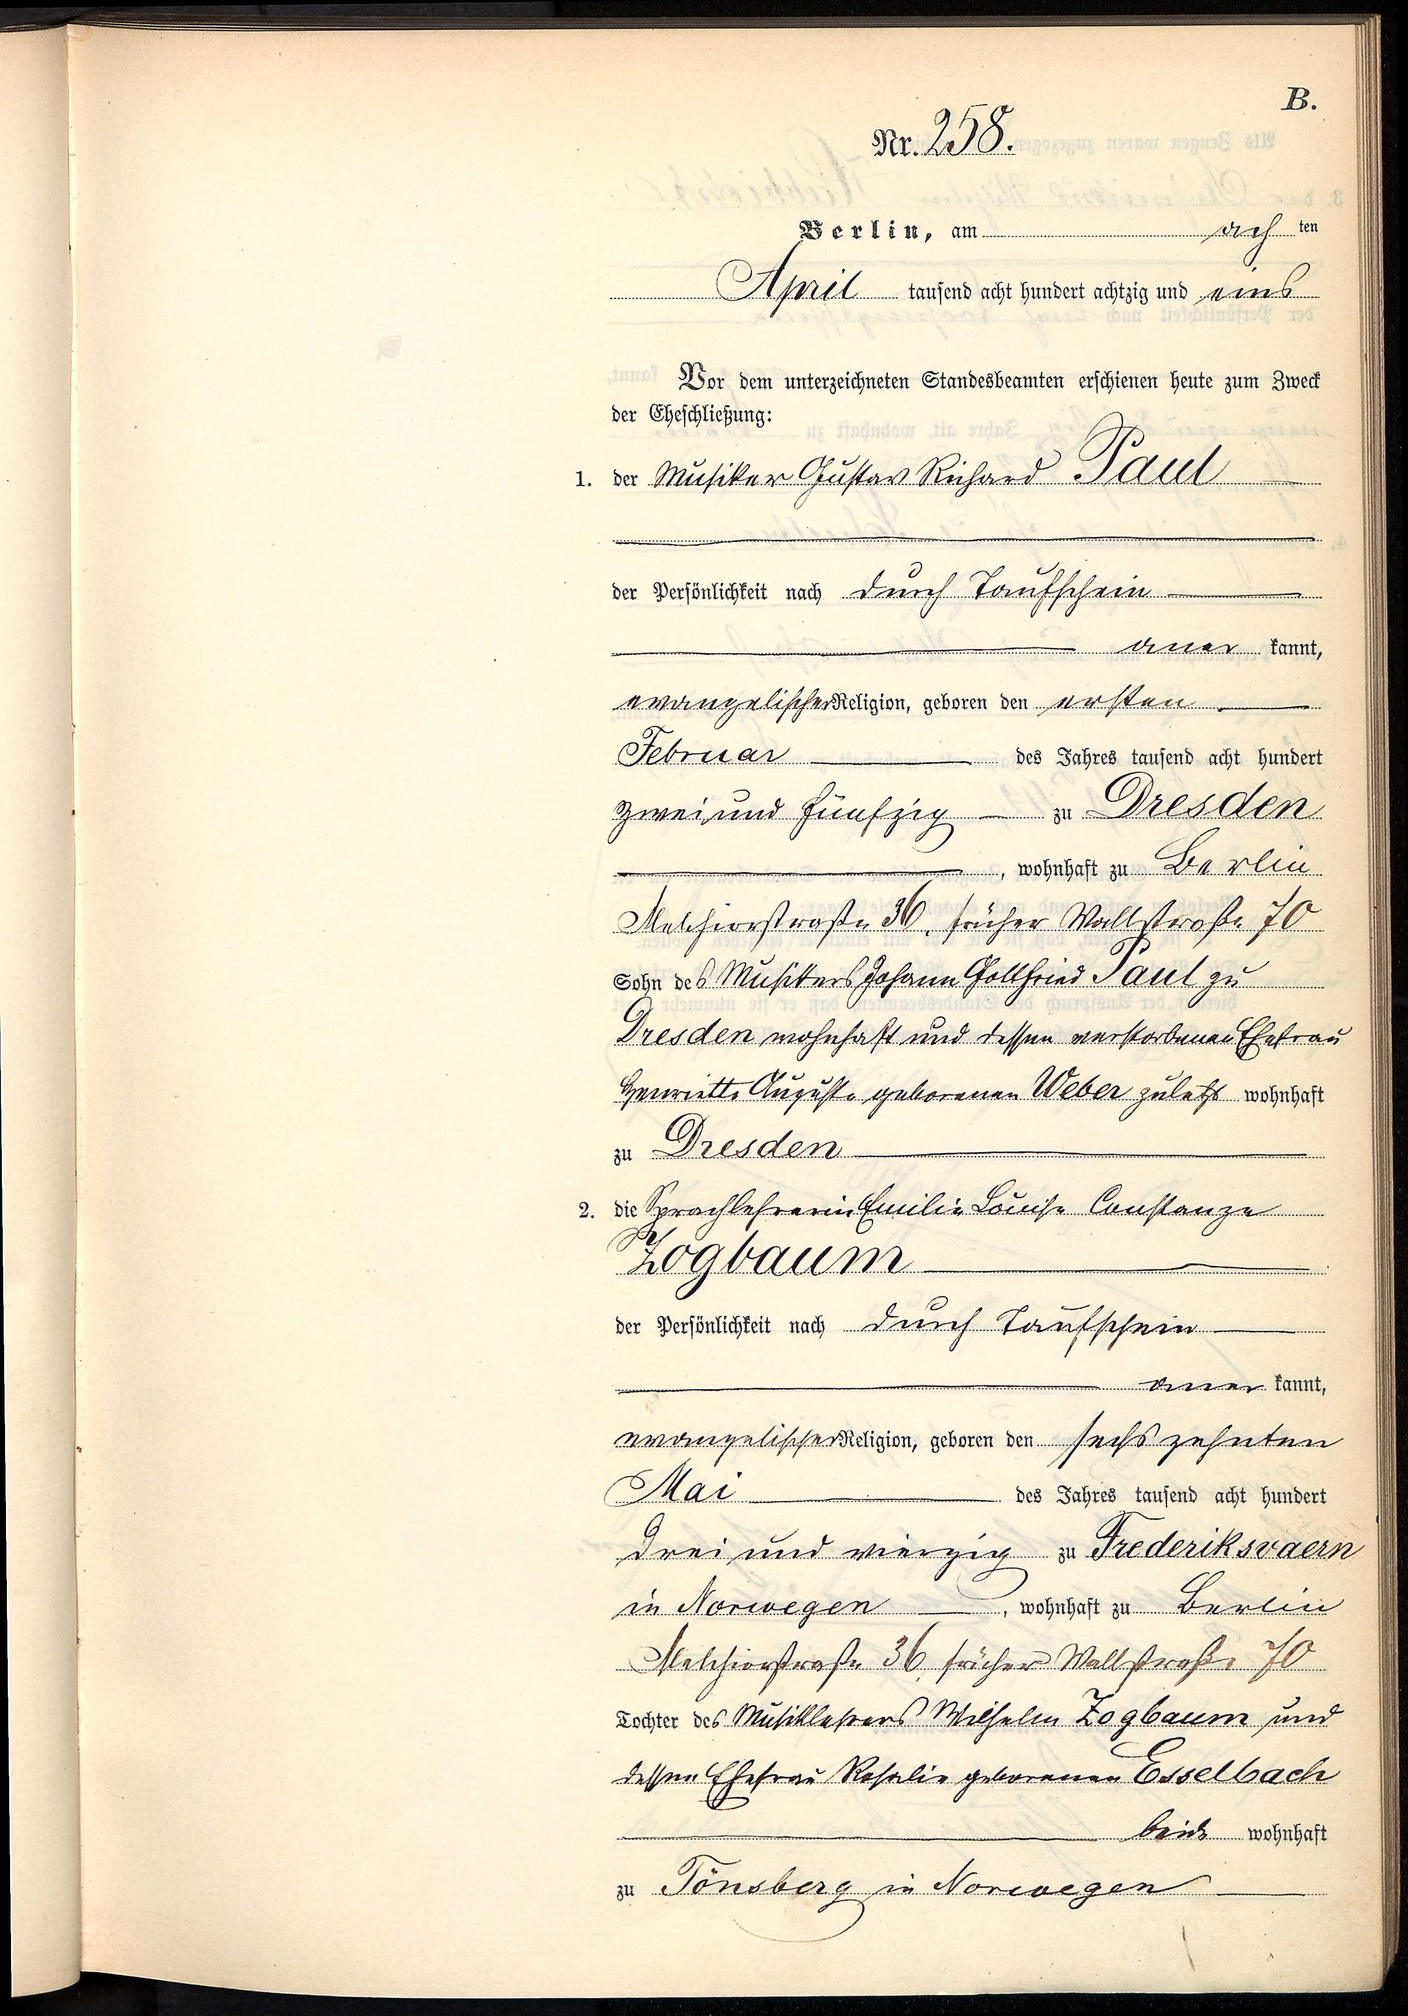 B.
Nr. 258.
Berlin, am ach ten
April tausend acht hundert achtzig und eins
Vor dem unterzeichneten Standesbeamten erschienen heute zum Zweck
der Eheschließung:
1. der Musiker Gustav Richard Paul
der Persönlichkeit nach durch Taufschein
aner kannt,
evangelischer Religion, geboren den ersten
Februar des Jahres tausend acht hundert
zwei und fünfzig zu Dresden
, wohnhaft zu Berlin
Melchiorstraße 36, früher Wallstraße 70
Sohn des Musikers Johann Gottfried Paul zu
Dresden wohnhaft und dessen verstorbenen Ehefrau
Henriette Auguste geborenen Weber zuletzt wohnhaft
zu Dresden
2. die Sprachlehrerin Emilie Louise Constanze
Zogbaum
der Persönlichkeit nach durch Taufschein
aner kannt,
evangelischer Religion, geboren den sechszehnten
Mai des Jahres tausend acht hundert
drei und vierzig zu Frederiksvaern
in Norwegen , wohnhaft zu Berlin
Melchiorstraße 36, früher Wallstraße 70
Tochter des Musiklehrers Wilhelm Zogbaum und
dessen Ehefrau Rosalie geborenen Esselbach
beide wohnhaft
zu Tönsberg in Norwegen